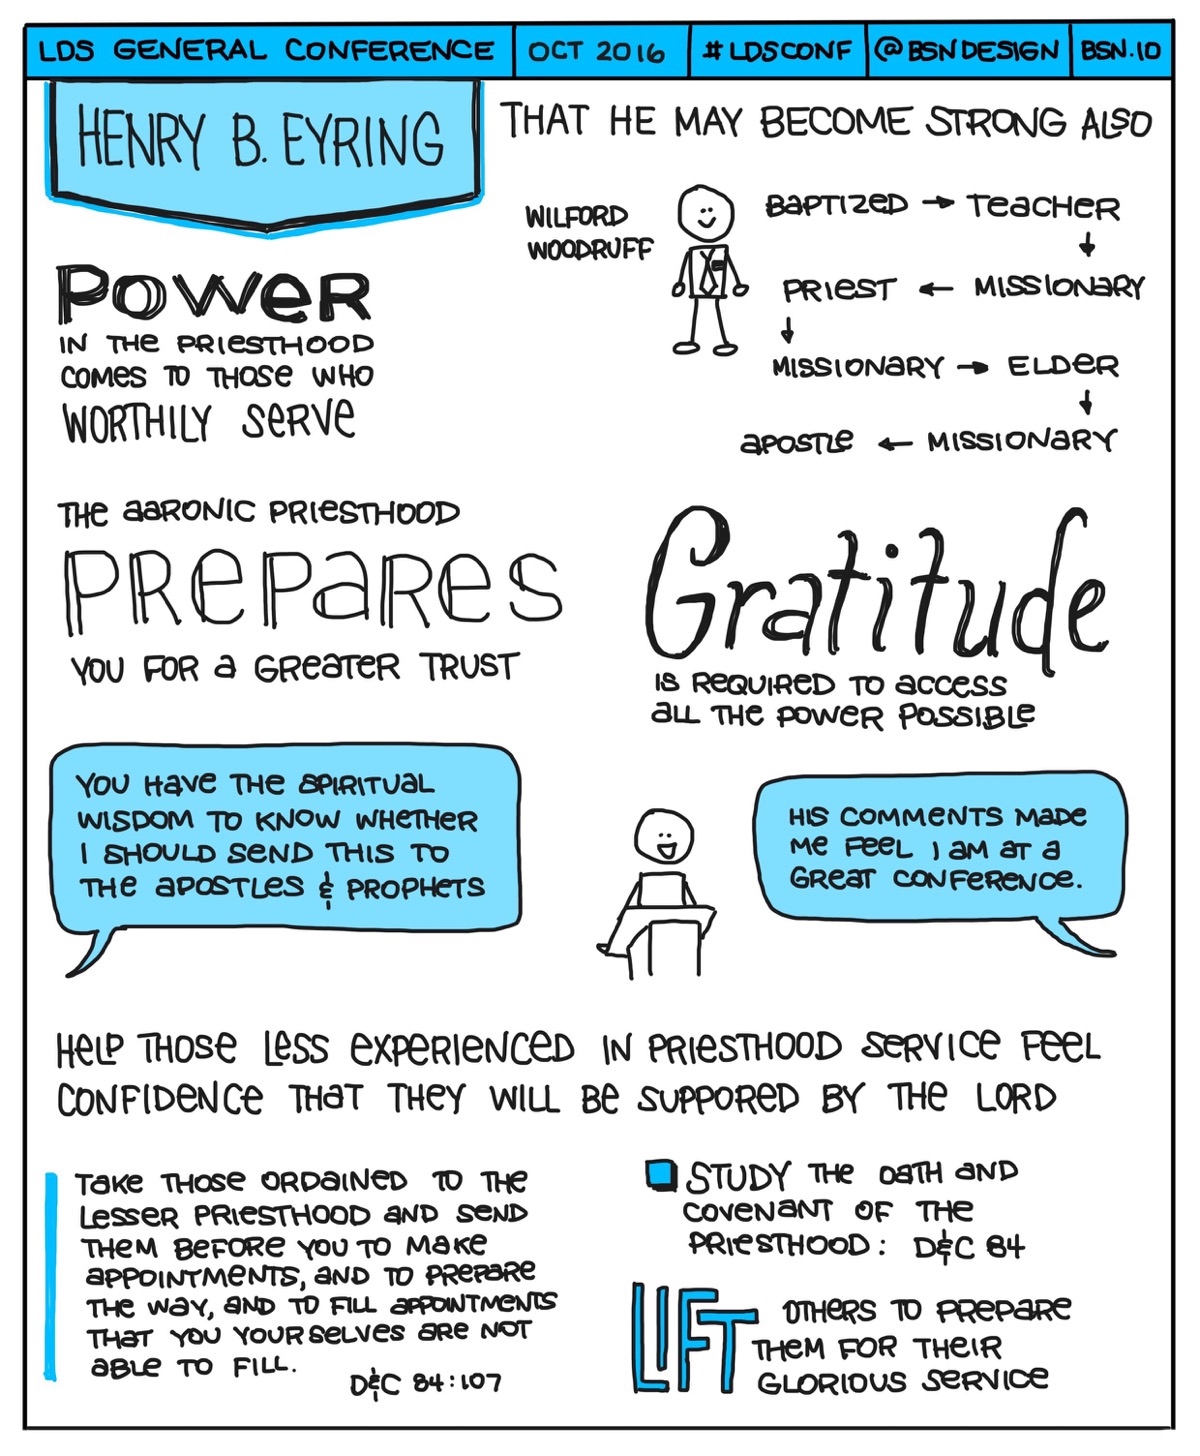 LDS GENERAL CONFERENCE OCT 2016 #LDSCONF @BSNDESIGN BSN.IO
HENRY B. EYRING
THAT HE MAY BECOME STRONG ALSO
WILFORD
WOODRUFF
BAPTIZED → TEACHER
↓
PRIEST ← MISSIONARY
↓
MISSIONARY → ELDER
↓
APOSTLE ← MISSIONARY
POWER
IN THE PRIESTHOOD
COMES TO THOSE WHO
WORTHILY SERVE
THE AARONIC PRIESTHOOD
PREPARES
YOU FOR A GREATER TRUST
Gratitude
IS REQUIRED TO ACCESS
ALL THE POWER POSSIBLE
YOU HAVE THE SPIRITUAL
WISDOM TO KNOW WHETHER
I SHOULD SEND THIS TO
THE APOSTLES & PROPHETS
HIS COMMENTS MADE
ME FEEL I AM AT A
GREAT CONFERENCE.
HELP THOSE LESS EXPERIENCED IN PRIESTHOOD SERVICE FEEL
CONFIDENCE THAT THEY WILL BE SUPPORED BY THE LORD
TAKE THOSE ORDAINED TO THE
LESSER PRIESTHOOD AND SEND
THEM BEFORE YOU TO MAKE
APPOINTMENTS, AND TO PREPARE
THE WAY, AND TO FILL APPOINTMENTS
THAT YOU YOURSELVES ARE NOT
ABLE TO FILL.
D&C 84:107
STUDY THE OATH AND
COVENANT OF THE
PRIESTHOOD: D&C 84
LIFT OTHERS TO PREPARE
THEM FOR THEIR
GLORIOUS SERVICE